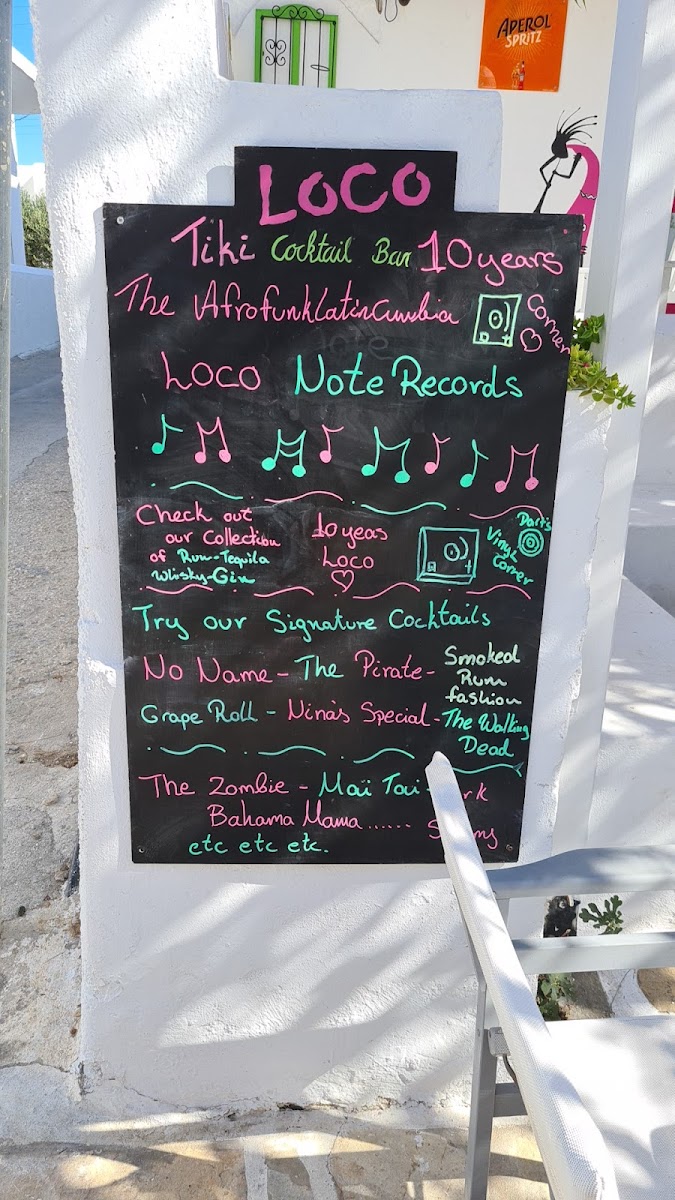 APEROL
SPRITZ
LOCO
Tiki Cocktail Bar 10 years
The AfrofunkLatinCumbia
Corner
LOCO Note Records
Check out
our Collection
of Rum-Tequila
Whisky-Gin
10 yeas
Loco
Dart's
Vinyl
Corner
Try our Signature Cocktails
No Name - The Pirate -
Smoked
Rum
fashion
Grape Roll - Nina's Special -
The Walking
Dead
The Zombie - Maï Tai -
Bahama Mama ......
etc etc etc.